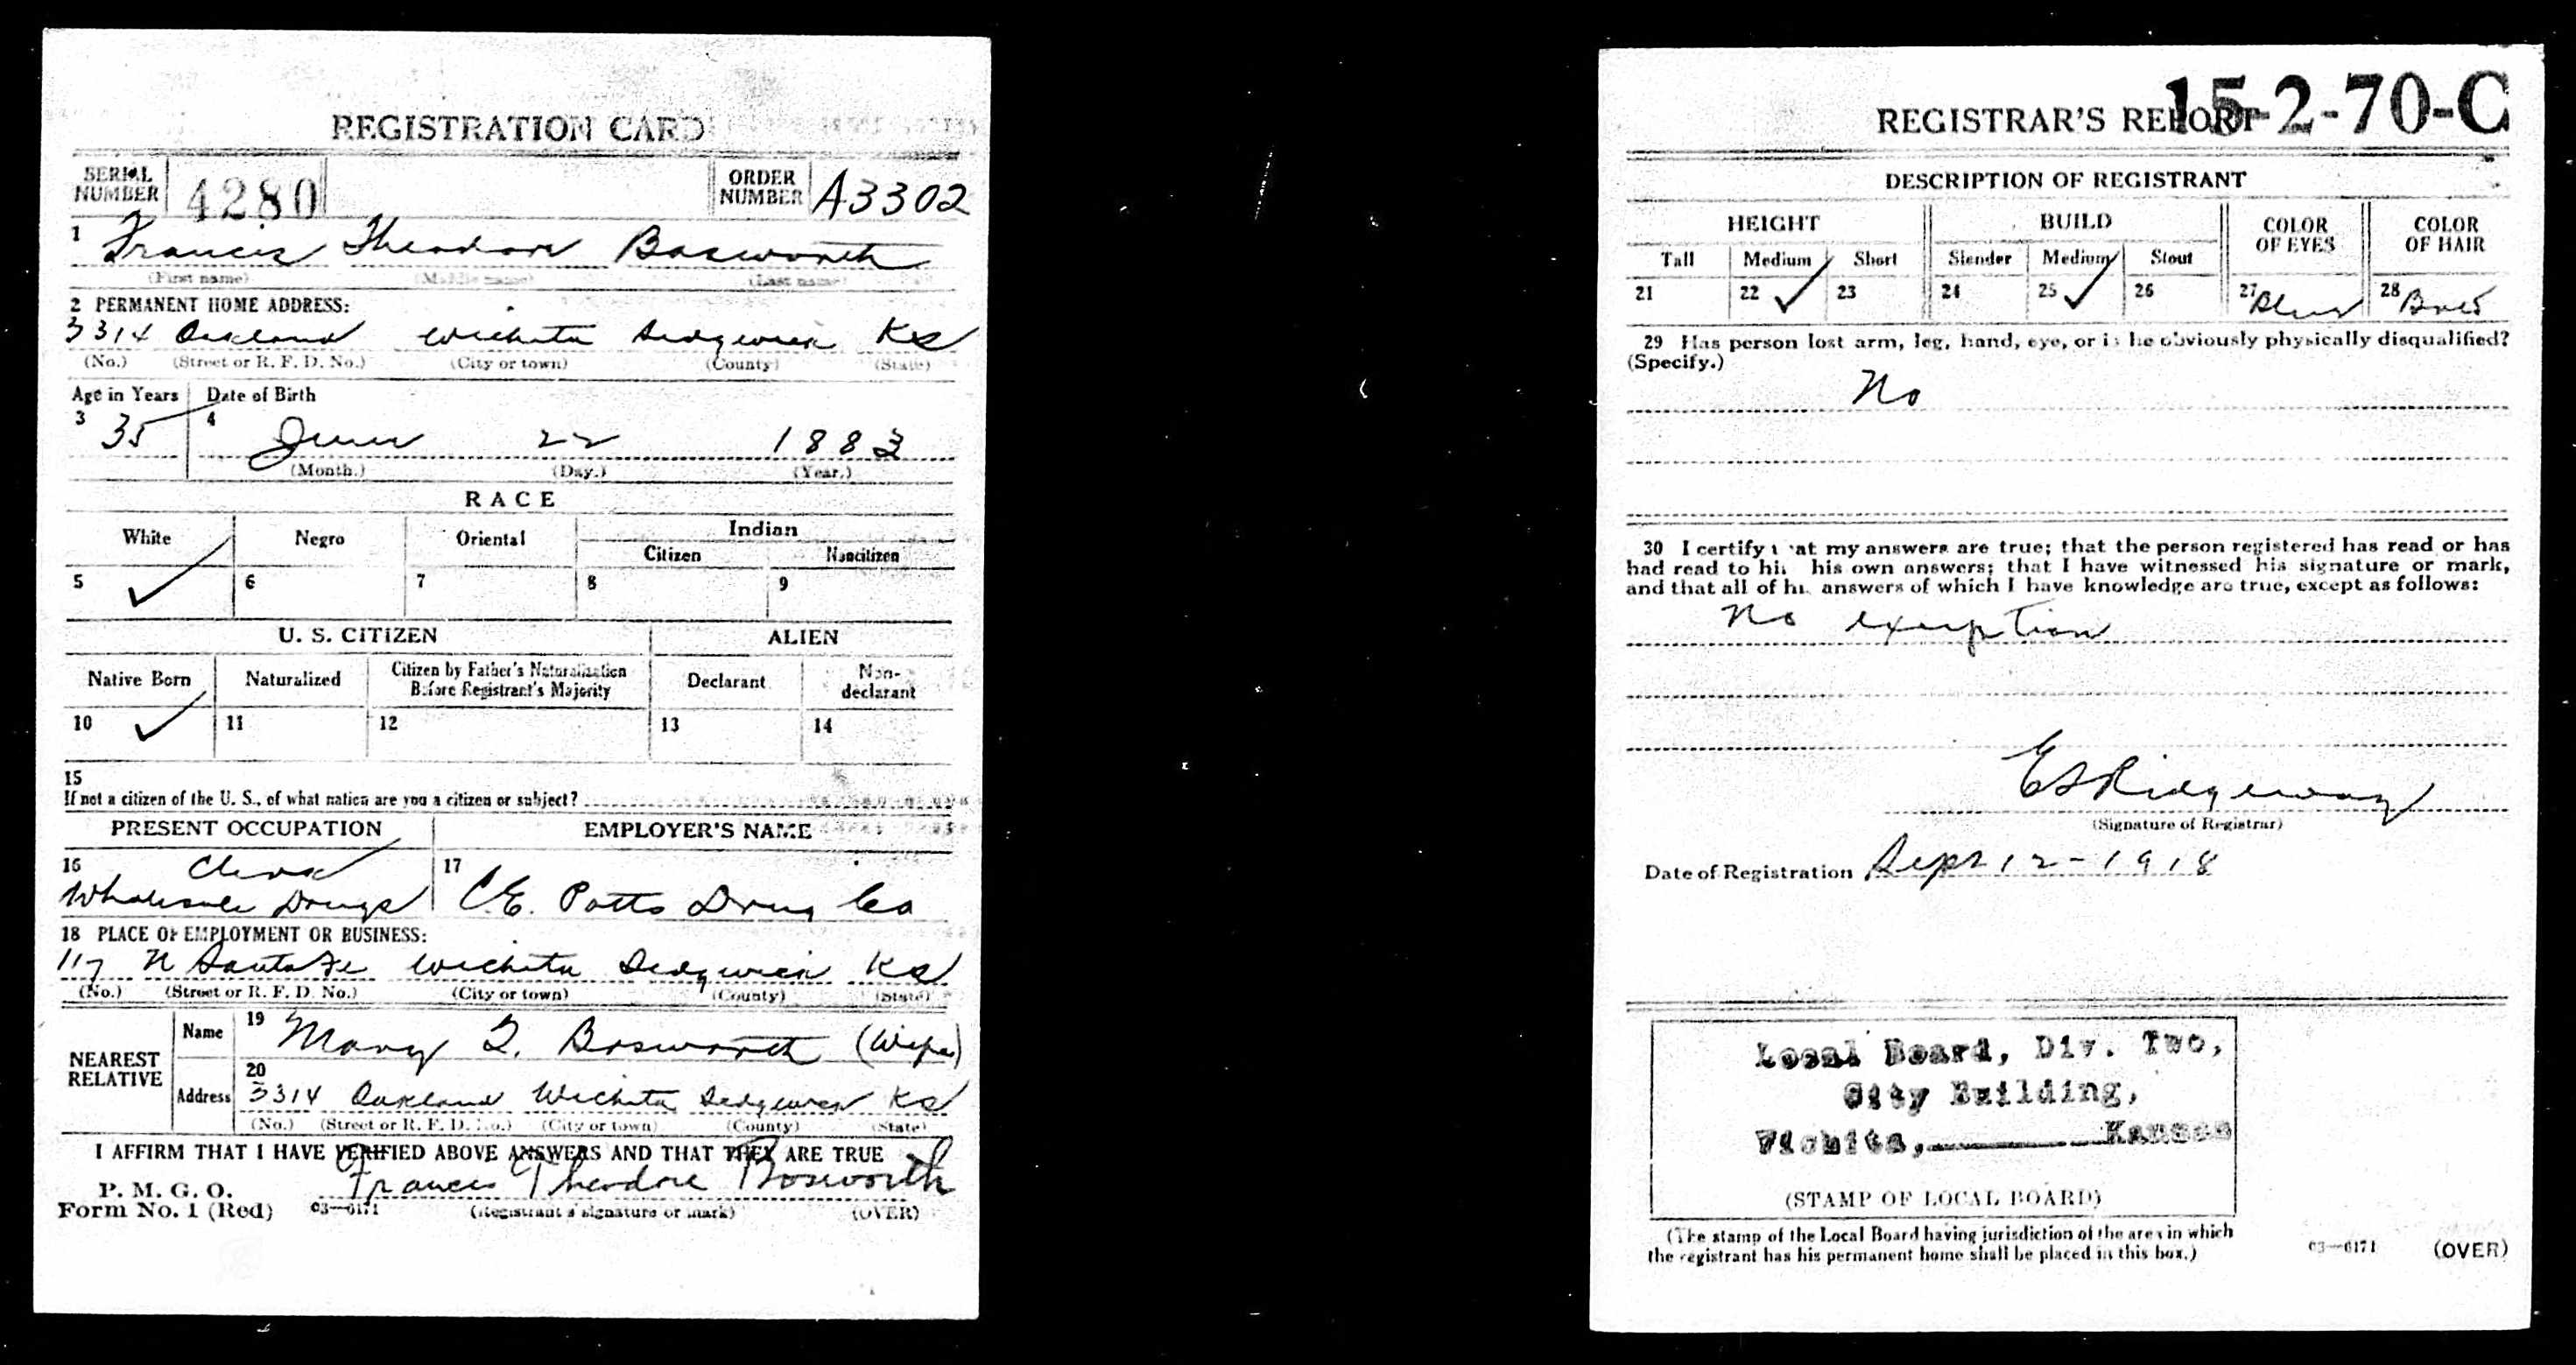 REGISTRATION CARD
SERIAL NUMBER 4280 ORDER NUMBER A3302
1 Francis Theodore Bosworth
(First name) (Middle name) (Last name)
2 PERMANENT HOME ADDRESS:
3314 Oakland Wichita Sedgwick Ks
(No.) (Street or R. F. D. No.) (City or town) (County) (State)
Age in Years Date of Birth
3 35 4 June 22 1883
(Month.) (Day.) (Year.)
RACE
White Negro Oriental Indian
Citizen Noncitizen
5 ✓ 6 7 8 9
U. S. CITIZEN ALIEN
Native Born Naturalized Citizen by Father's Naturalization Before Registrant's Majority Declarant Non-declarant
10 ✓ 11 12 13 14
15
If not a citizen of the U. S., of what nation are you a citizen or subject?
PRESENT OCCUPATION EMPLOYER'S NAME
16 Clerk 17
Wholesale Drugs C.E. Potts Drug Co
18 PLACE OF EMPLOYMENT OR BUSINESS:
117 N Santa Fe Wichita Sedgwick Ks
(No.) (Street or R. F. D. No.) (City or town) (County) (State)
NEAREST RELATIVE
Name 19 Mary T. Bosworth (Wife)
20
Address 3314 Oakland Wichita Sedgwick Ks
(No.) (Street or R. F. D. No.) (City or town) (County) (State)
I AFFIRM THAT I HAVE VERIFIED ABOVE ANSWERS AND THAT THEY ARE TRUE
P. M. G. O.
Form No. 1 (Red) 03—6171
Francis Theodore Bosworth
(Registrant's signature or mark) (OVER)
REGISTRAR'S REPORT 15-2-70-C
DESCRIPTION OF REGISTRANT
HEIGHT BUILD COLOR OF EYES COLOR OF HAIR
Tall Medium Short Slender Medium Stout
21 22 ✓ 23 24 25 ✓ 26 27 Blue 28 Bald
29 Has person lost arm, leg, hand, eye, or is he obviously physically disqualified?
(Specify.)
No
30 I certify that my answers are true; that the person registered has read or has
had read to him his own answers; that I have witnessed his signature or mark,
and that all of his answers of which I have knowledge are true, except as follows:
No exemption
E S Ridgeway
(Signature of Registrar)
Date of Registration Sept 12 - 1918
Local Board, Div. Two,
City Building,
Wichita, Kansas
(STAMP OF LOCAL BOARD)
(The stamp of the Local Board having jurisdiction of the area in which
the registrant has his permanent home shall be placed in this box.)
03—6171 (OVER)